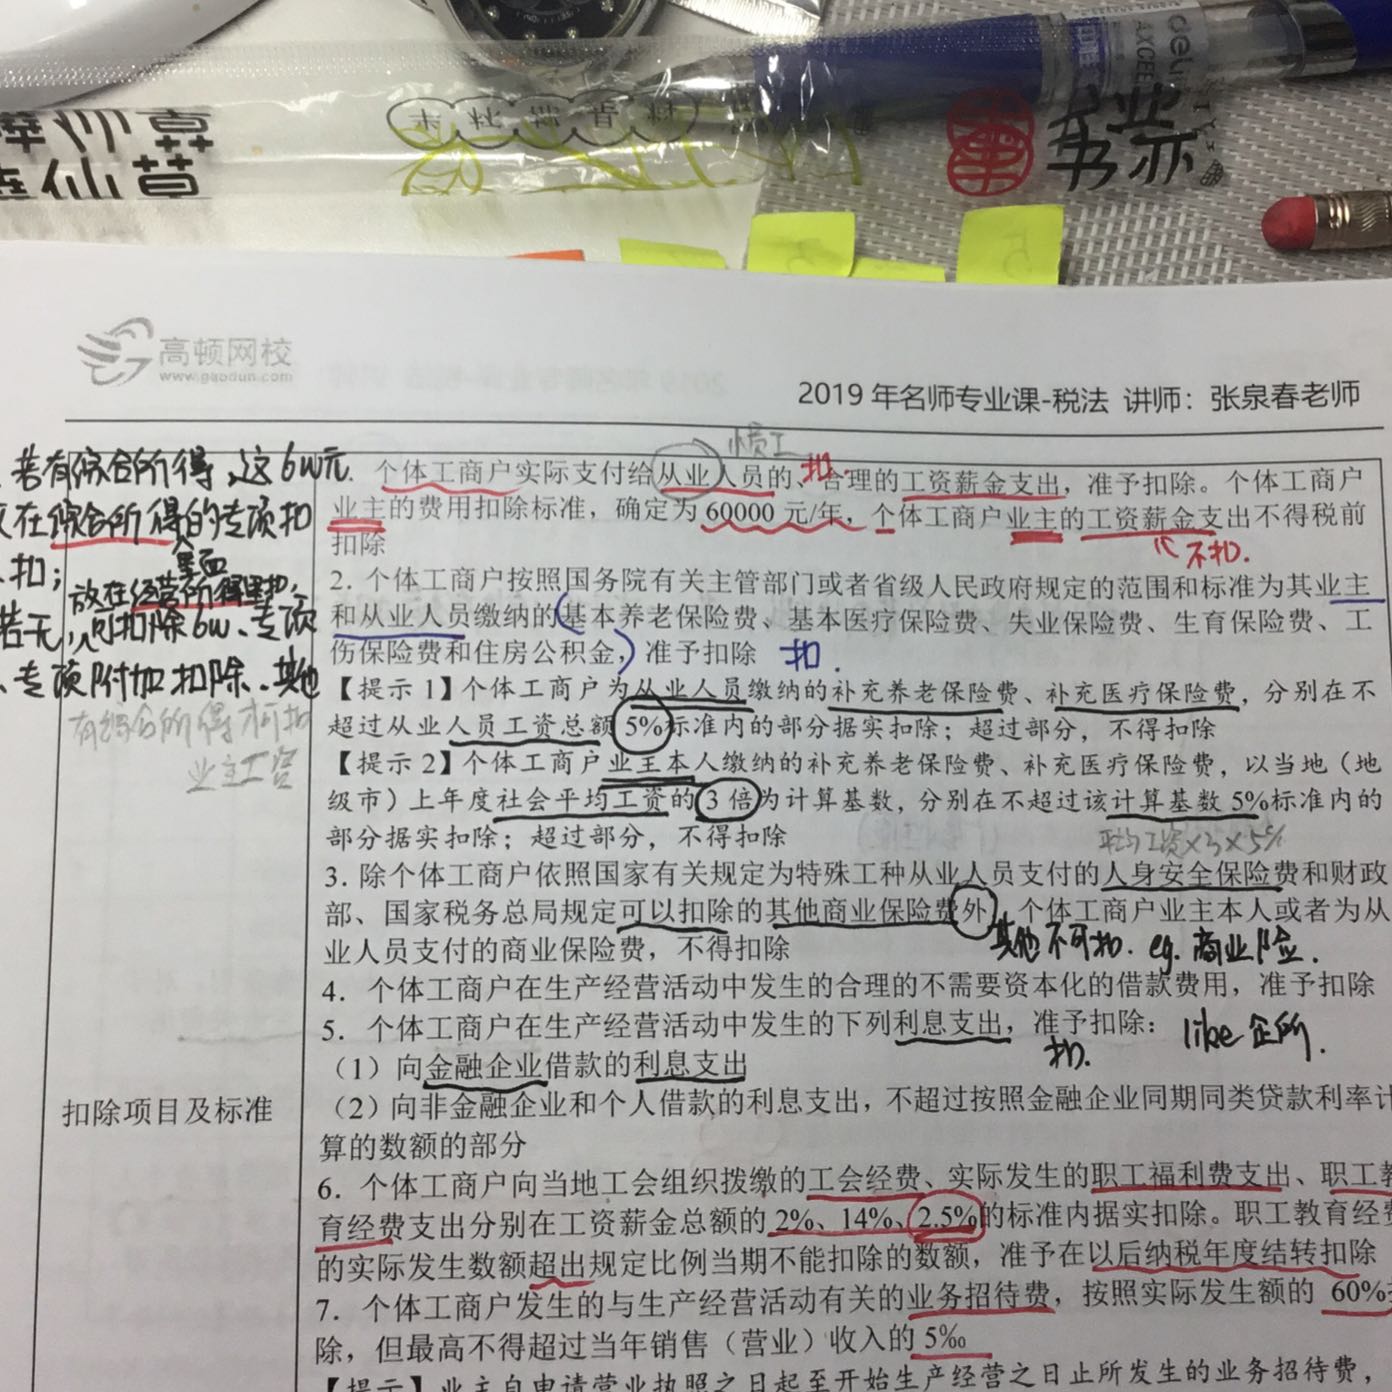 deli
AXCEE
书亦
仙草
高顿网校
www.gaodun.com
2019 年名师专业课-税法 讲师：张泉春老师
若有综合所得，这6w元
在综合所得的专项扣
里面
扣；
放在经营所得里扣，
若无，可扣除6w、专项
、专项附加扣除、其他
有综合所得不可扣
业主工资
扣除项目及标准
员工
扣.
个体工商户实际支付给从业人员的、合理的工资薪金支出，准予扣除。个体工商户
业主的费用扣除标准，确定为 60000 元/年，个体工商户业主的工资薪金支出不得税前
扣除
不扣.
2. 个体工商户按照国务院有关主管部门或者省级人民政府规定的范围和标准为其业主
和从业人员缴纳的基本养老保险费、基本医疗保险费、失业保险费、生育保险费、工
伤保险费和住房公积金，准予扣除 扣.
【提示 1】个体工商户为从业人员缴纳的补充养老保险费、补充医疗保险费，分别在不
超过从业人员工资总额 5%标准内的部分据实扣除；超过部分，不得扣除
【提示 2】个体工商户业主本人缴纳的补充养老保险费、补充医疗保险费，以当地（地
级市）上年度社会平均工资的 3 倍为计算基数，分别在不超过该计算基数 5%标准内的
部分据实扣除；超过部分，不得扣除
平均工资×3×5%
3. 除个体工商户依照国家有关规定为特殊工种从业人员支付的人身安全保险费和财政
部、国家税务总局规定可以扣除的其他商业保险费外，个体工商户业主本人或者为从
业人员支付的商业保险费，不得扣除
其他不可扣. eg. 商业险.
4．个体工商户在生产经营活动中发生的合理的不需要资本化的借款费用，准予扣除
5．个体工商户在生产经营活动中发生的下列利息支出，准予扣除：
扣.
like 企所.
（1）向金融企业借款的利息支出
（2）向非金融企业和个人借款的利息支出，不超过按照金融企业同期同类贷款利率计
算的数额的部分
6．个体工商户向当地工会组织拨缴的工会经费、实际发生的职工福利费支出、职工教
育经费支出分别在工资薪金总额的 2%、14%、2.5%的标准内据实扣除。职工教育经费
的实际发生数额超出规定比例当期不能扣除的数额，准予在以后纳税年度结转扣除
7．个体工商户发生的与生产经营活动有关的业务招待费，按照实际发生额的 60%扣
除，但最高不得超过当年销售（营业）收入的 5‰
【提示】业主自申请营业执照之日起至开始生产经营之日止所发生的业务招待费，